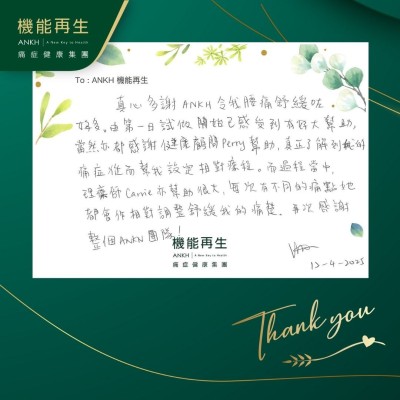 機能再生
ANKH | A New Key to Health
痛症健康集團
To : ANKH 機能再生
真心多謝 ANKH 令我腰痛舒緩咗
好多。由第一日試做開始已感受到有好大幫助,
當然亦都感謝健康顧問 Perry 幫助,真正了解到我的
痛症從而幫我設定相對療程。而過程當中,
理療師 Carrie 亦幫助很大,每次有不同的痛點她
都會作相對調整舒緩我的痛楚。再次感謝
整個 ANKH 團隊!
機能再生
ANKH | A New Key to Health
痛症健康集團
12-4-2025
Thank you